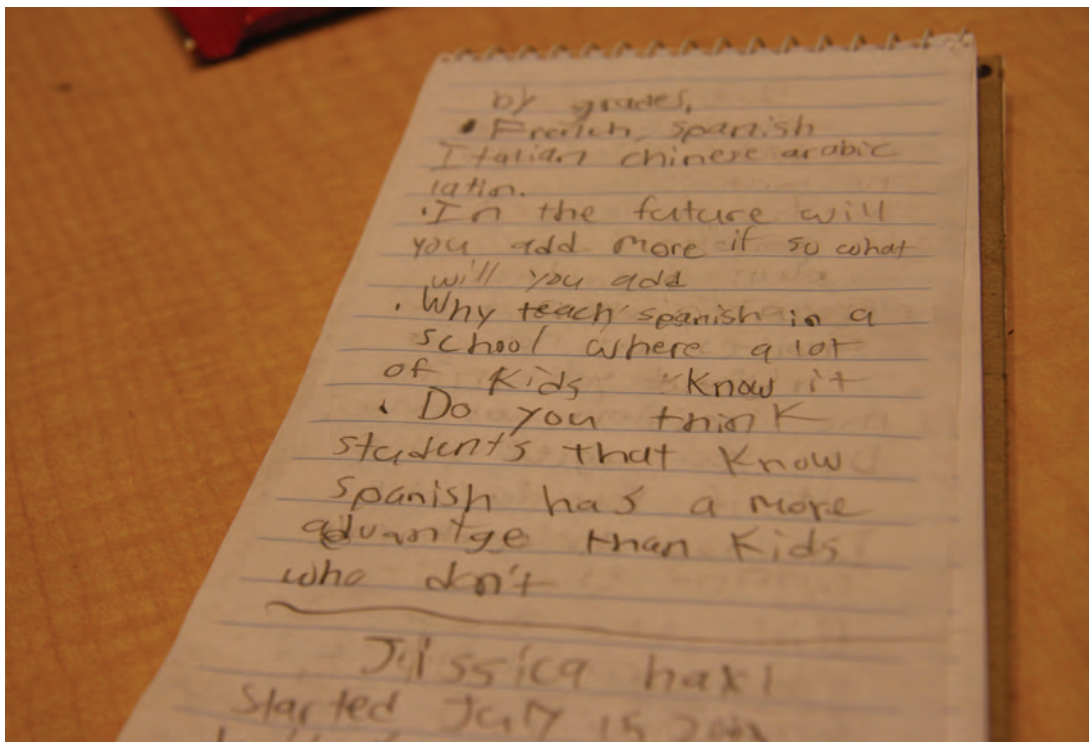 by grades,
• French, spanish
Italian chinese arabic
latin.
• In the future will
you add more if so what
will you add
• Why teach spanish in a
school where a lot
of kids know it
• Do you think
students that know
spanish has a more
advantge than kids
who don't
Jissica haxi
Started July 15